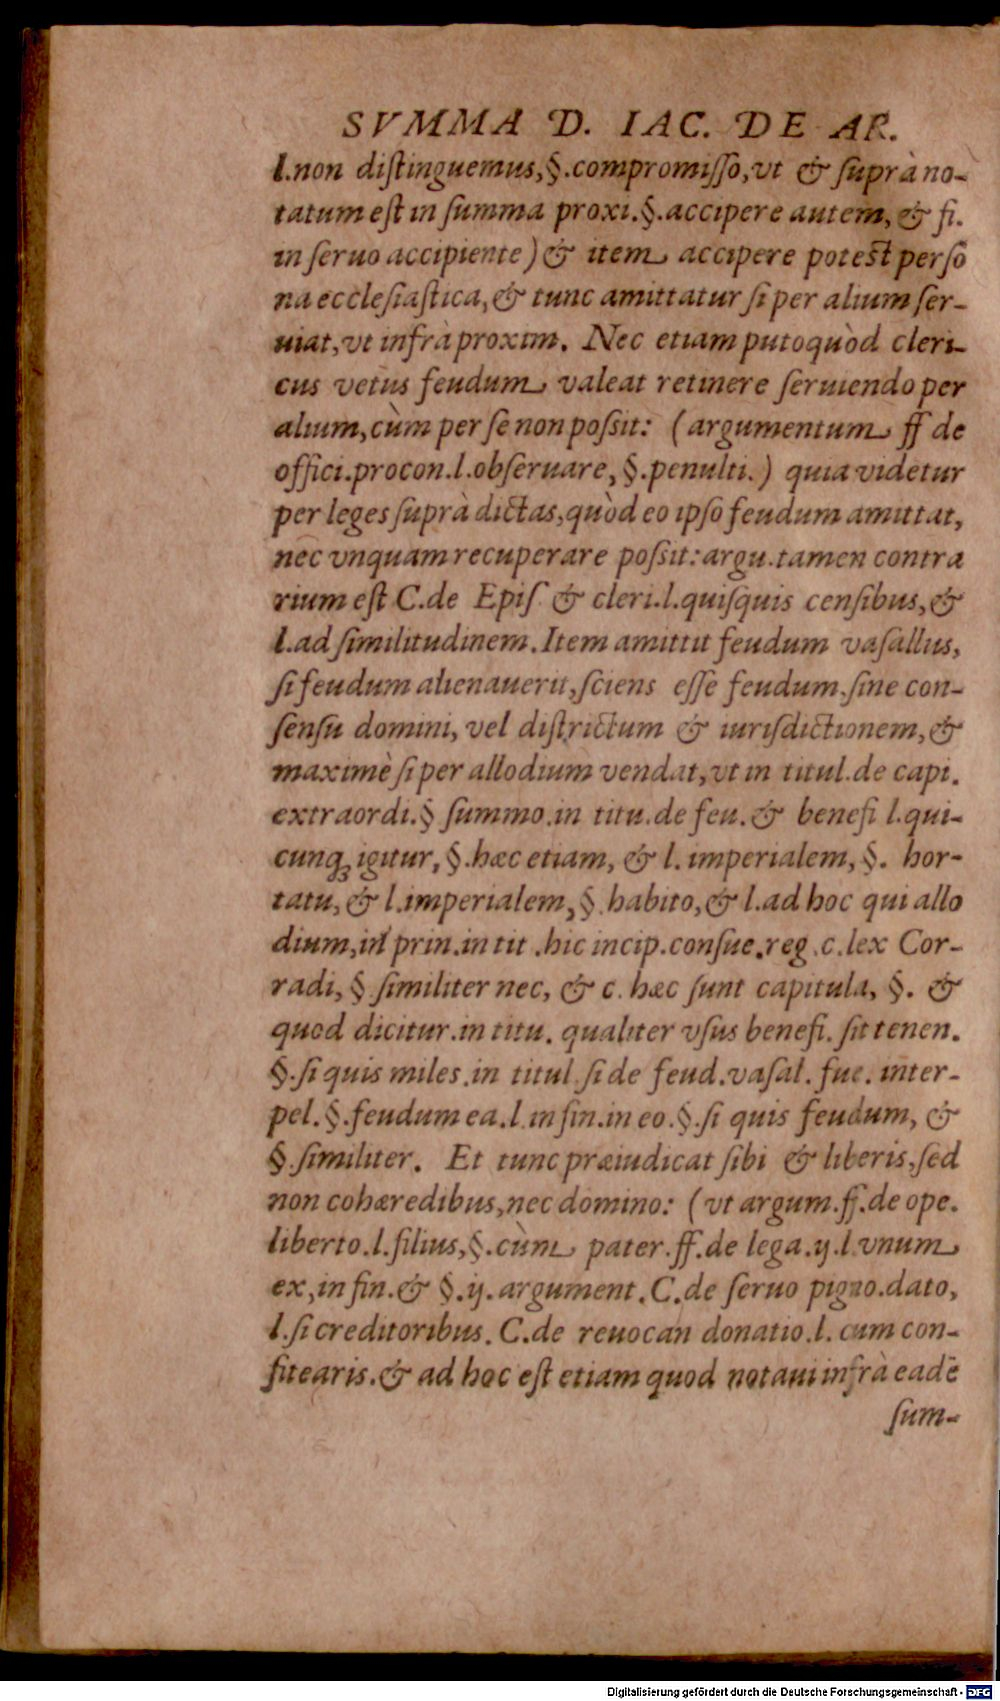 SVMMA D. IAC. DE AR.
l.non diſtinguemus,§.compromiſſo,vt & ſuprà no-
tatum eſt in ſumma proxi.§.accipere autem, & fi.
in ſeruo accipiente) & item accipere poteſt perſō
na eccleſiaſtica, & tunc amittatur ſi per alium ſer-
uiat,vt infrà proxim. Nec etiam puto quòd cleri-
cus vetus feudum valeat retinere ſeruiendo per
alium,cùm per ſe non poſsit: (argumentum ff de
offici.procon.l.obſeruare, §.penulti.) quia videtur
per leges ſuprà dictas,quòd eo ipſo feudum amittat,
nec vnquam recuperare poſsit: argu.tamen contra
rium eſt C.de Epiſ & cleri.l.quiſquis cenſibus, &
l.ad ſimilitudinem. Item amittit feudum vaſallus,
ſi feudum alienauerit,ſciens eſſe feudum.ſine con-
ſenſu domini, vel diſtrictum & iuriſdictionem, &
maximè ſi per allodium vendat,vt in titul.de capi.
extraordi.§ ſummo.in titu.de feu. & benefi l.qui-
cunqꝫ igitur, §.hæc etiam, & l. imperialem, §. hor-
tatu, & l.imperialem, §.habito, & l.ad hoc qui allo
dium,in prin.in tit .hic incip.conſue.reg .c.lex Cor-
radi, § ſimiliter nec, & c. hæc ſunt capitula, §. &
quod dicitur.in titu. qualiter vſus benefi. ſit tenen.
§.ſi quis miles.in titul ſi de feud.vaſal. fue. inter-
pel.§.feudum ea.l.in fin.in eo.§.ſi quis feudum, &
§.ſimiliter. Et tunc præiudicat ſibi & liberis,ſed
non cohæredibus,nec domino: (vt argum.ff.de ope.
liberto.l.filius,§.cùm pater.ff.de lega.ij.l.vnum
ex,in fin. & §.ij.argument.C.de ſeruo pigno.dato,
l.ſi creditoribus. C.de reuocan donatio.l. cum con-
fitearis. & ad hoc eſt etiam quod notaui infrà eadē
ſum-
Digitalisierung gefördert durch die Deutsche Forschungsgemeinschaft - DFG